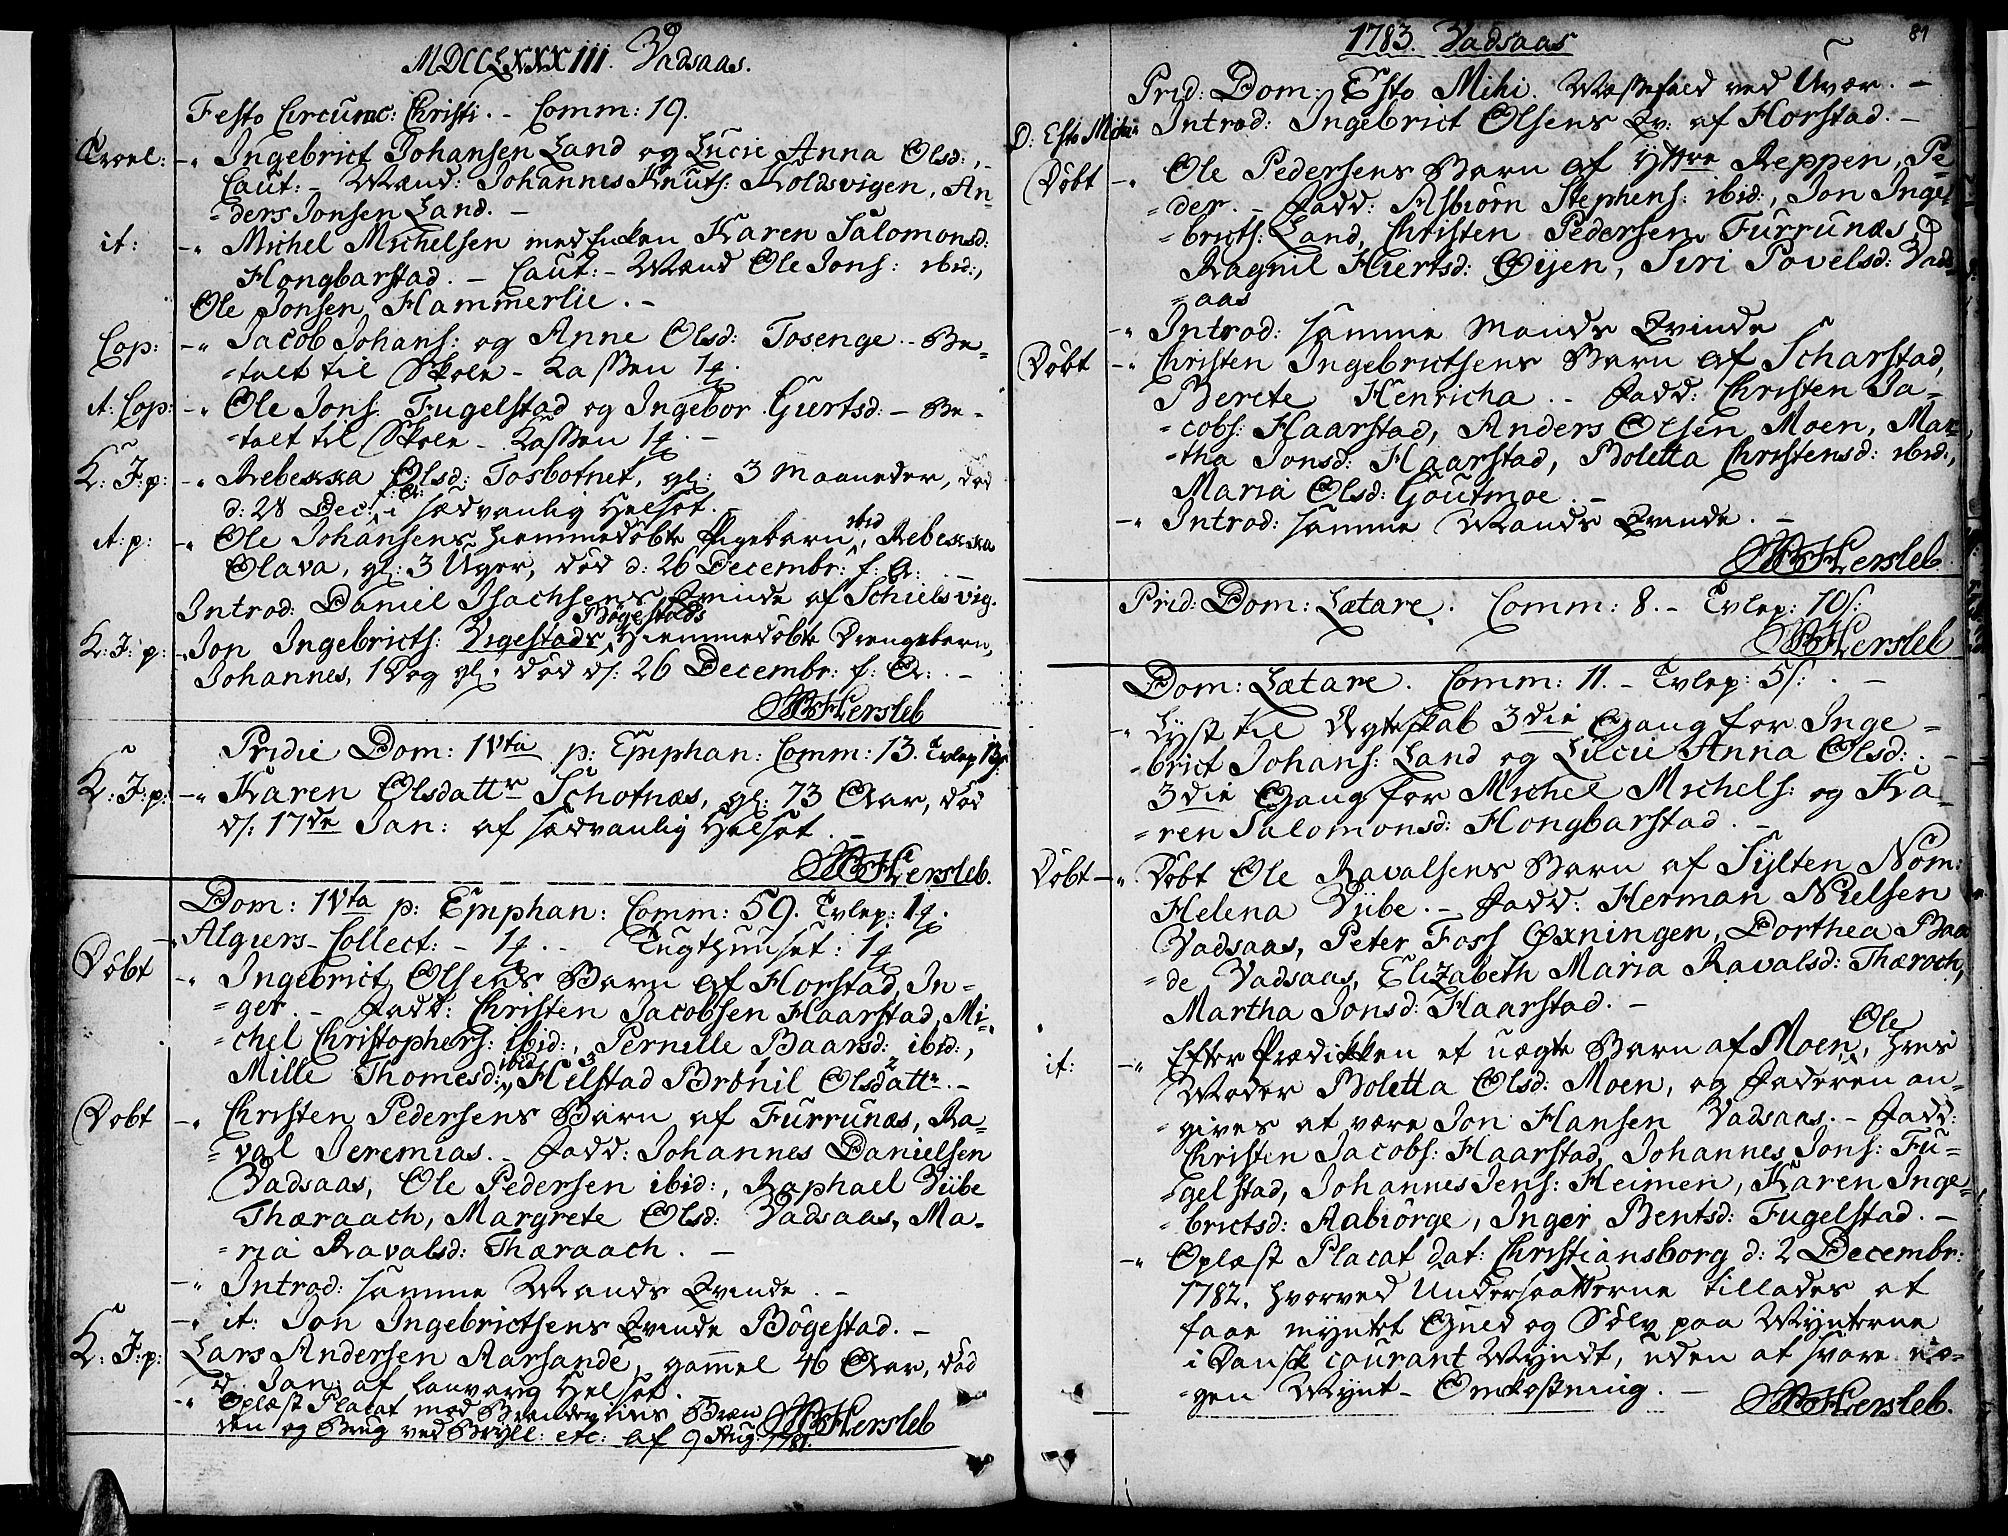 MDCCLXXXIII. Vadsaas.
Festo Circumc: Christi. - Comm: 19.
Trool: -„ Ingebrict Johansen Land og Lucie Anna Olsd:,
Caut: - Mænd: Johannes Knuts: Koldsvigen, An-
-ders Jonsen Land. -
it: -„ Michel Michelsen med Enken Karen Salomonsd:
Hongbarstad. - Caut: - Mænd Ole Jons: ibid:,
Ole Jonsen Hammerlie. -
Cop: -„ Jacob Johans: og Anne Olsd: Tosenge. - Be-
-talt til Skole - Kassen 1
it: Cop: -„ Ole Jons: Fugelstad og Ingebor Giertsd: - Be-
-talt til Skole - Kassen 1
K: J: p: -„ Rebekka Olsd: Tosbotnet, gl: 3 Maaneder, död
d: 28 Dec: f: A: i sædvanlig Helsot.
it: p: -„ Ole Johansens hiemmedöbte Pigebarn ibid, Rebekka
Olava, gl: 3 Uger, död d: 26 Decembr: f: A: -
Introd: Daniel Isachsens Qvinde af Schielsvig.
Bögestads
K: J: p: -„ Jon Ingebricts: Vigestads, hiemmedöbte Drengebarn,
Johannes, 1 Dag gl: död d: 26 Decembr: f: A: -
Hersleb
Pridie Dom: IVta p: Epiphan: Comm: 13. Tvlep:
K: J: p: -„ Karen Olsdattr Schotnæs, gl: 73 Aar, död
d: 17de Jan: af sædvanlig Helsot. -
Hersleb.
Dom: IVta p: Epiphan: Comm: 59. Tvlep: 1
-„ Algiers - Collect: - 1 - Tugthuuset: 1
Döbt -„ Ingebrict Olsens Barn af Horstad, In-
-ger. - Fadd: Christen Jacobsen Haarstad, Mi-
-chel Christophers: ibid:, Pernille Baarsd: ibid:,
Mille Thomesd: ibid, Helstad Brönil Olsdattr. -
Döbt -„ Christen Pedersens Barn af Furrunæs, Ra-
-val Jeremias. - Fadd: Johannes Danielsen
Vadsaas, Ole Pedersen ibid:, Raphael Viibe
Thæraach, Margrete Olsd: Vadsaas, Ma-
-ria Ravalsd: Thæraach. -
-„ Introd: samme Mands Qvinde. -
-„ it: Jon Ingebrictsens Qvinde Bögestad. -
K: J: p: Lars Andersen Aarsande, gammel 46 Aar, död
d: Jan: af langvarig Helsot.
-„ Oplæst Placat mod Brændeviins Bræn-
den og Brug ved Bryll: etc: af 9 Aug: 1781.
Hersleb
1783. Vadsaas
81
Prid: Dom: Esto Mihi. Messefald ved Uvær. -
D: Esto Mihi „ Introd: Ingebrict Olsens Qv: af Horstad. -
Döbt -„ Ole Pedersens Barn af Yttre Reppen, Pe-
-der. - Fadd: Asbiörn Stephens: ibid:, Jon Inge-
-bricts: Land, Christen Pedersen Furrunæs,
Ragnil Hiertsd: Öijen, Siri Povelsd: Vads-
-aas
-„ Introd: samme Mands Qvinde
Döbt -„ Christen Ingebrictsens Barn af Scharstad,
Berete Henricha. - Fadd: Christen Ja-
-cobs: Haarstad, Anders Olsen Moen, Mar-
-tha Jonsd: Haarstad, Boletta Christensd: ibid:,
Maria Olsd: Goutmoe. -
-„ Introd: samme Mands Qvinde. -
Hersleb
Prid: Dom: Lætare. Comm: 8. - Tvlep: 10 s:
Hersleb
Dom: Lætare. Comm: 11. - Tvlep: 5 s: -
-„ Lyst til Ægteskab 3die Gang for Inge-
-brict Johans: Land og Lucie Anna Olsd: -
3die Gang for Michel Michels: og Ka-
-ren Salomonsd: Hongbarstad. -
Döbt -„ Döbt Ole Ravalsens Barn af Sylten Nom:
Helena Viibe. - Fadd: Herman Nielsen
Vadsaas, Peter Foss Öxningen, Dorthea Baa-
-de Vadsaas, Elizabeth Maria Ravalsd: Thæroch,
Martha Jonsd: Haarstad. -
it: -„ Efter Prædikken et uægte Barn af Moen, Ole, hvis
Moder Boletta Olsd: Moen, og Faderen an-
-gives at være Jon Hansen Vadsaas. - Fadd:
Christen Jacobs: Haarstad, Johannes Jons: Fu-
-gelstad, Johannes Jens: Heimen, Karen Inge-
-brictsd: Aabiörge, Inger Bentsd: Fugelstad. -
-„ Oplæst Placat dat: Christiansborg d: 2 Decembr:
1782. hvorved Undersaatterne tillades at
faae myntet Guld og Sölv paa Mynterne
i Dansk courant Myndt, uden at svare no-
-gen Mynt - Omkostning. -
Hersleb.